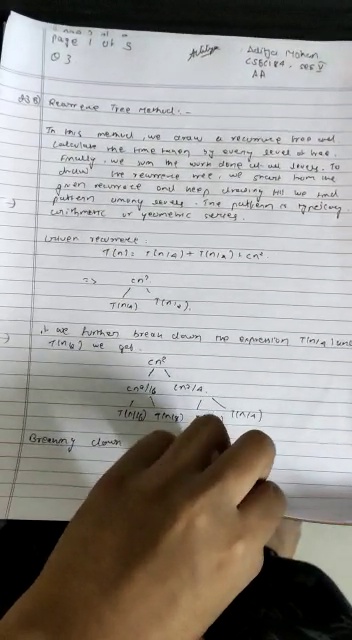 Page 1 of 3
Q 3
Aditya Mohan
CSE
AA
Recurrence Tree Method :-
In this method, we draw a recurrence tree and
calculate the time taken by every level of tree.
Finally, we sum the work done at all levels. To
draw the recurrence tree, we start from the
given recurrence and keep drawing till we find
pattern among levels. The pattern is typically
arithmetic or geometric series.
Given recurrence
T(n) = T(n/4) + T(n/2) + cn²
=> cn²
T(n/4) T(n/2)
we further break down the expression T(n/4) and
T(n/2) we get.
cn²
cn²/16 cn²/4
T(n/16) T(n/8) T(n/4)
Breaking down